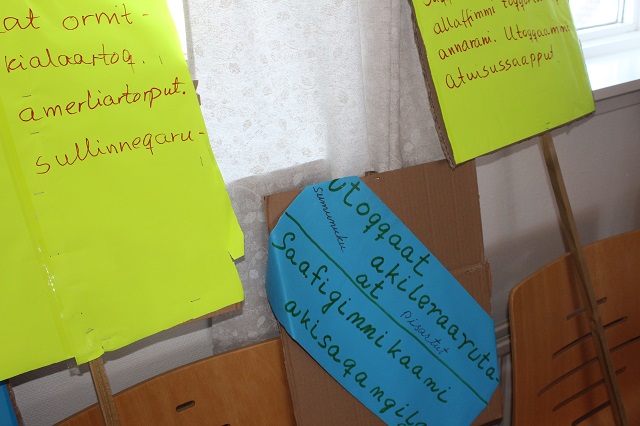 at ormit-
kialaartoq.
amerliartorput.
sullinneqaru-
allaffimmi
annarani. Utoqqaam
atuisussaapput
Utoqqaat
sumunuku
akileraaruta
at
Pisartut
Saafigimmikaani
akisaqangila